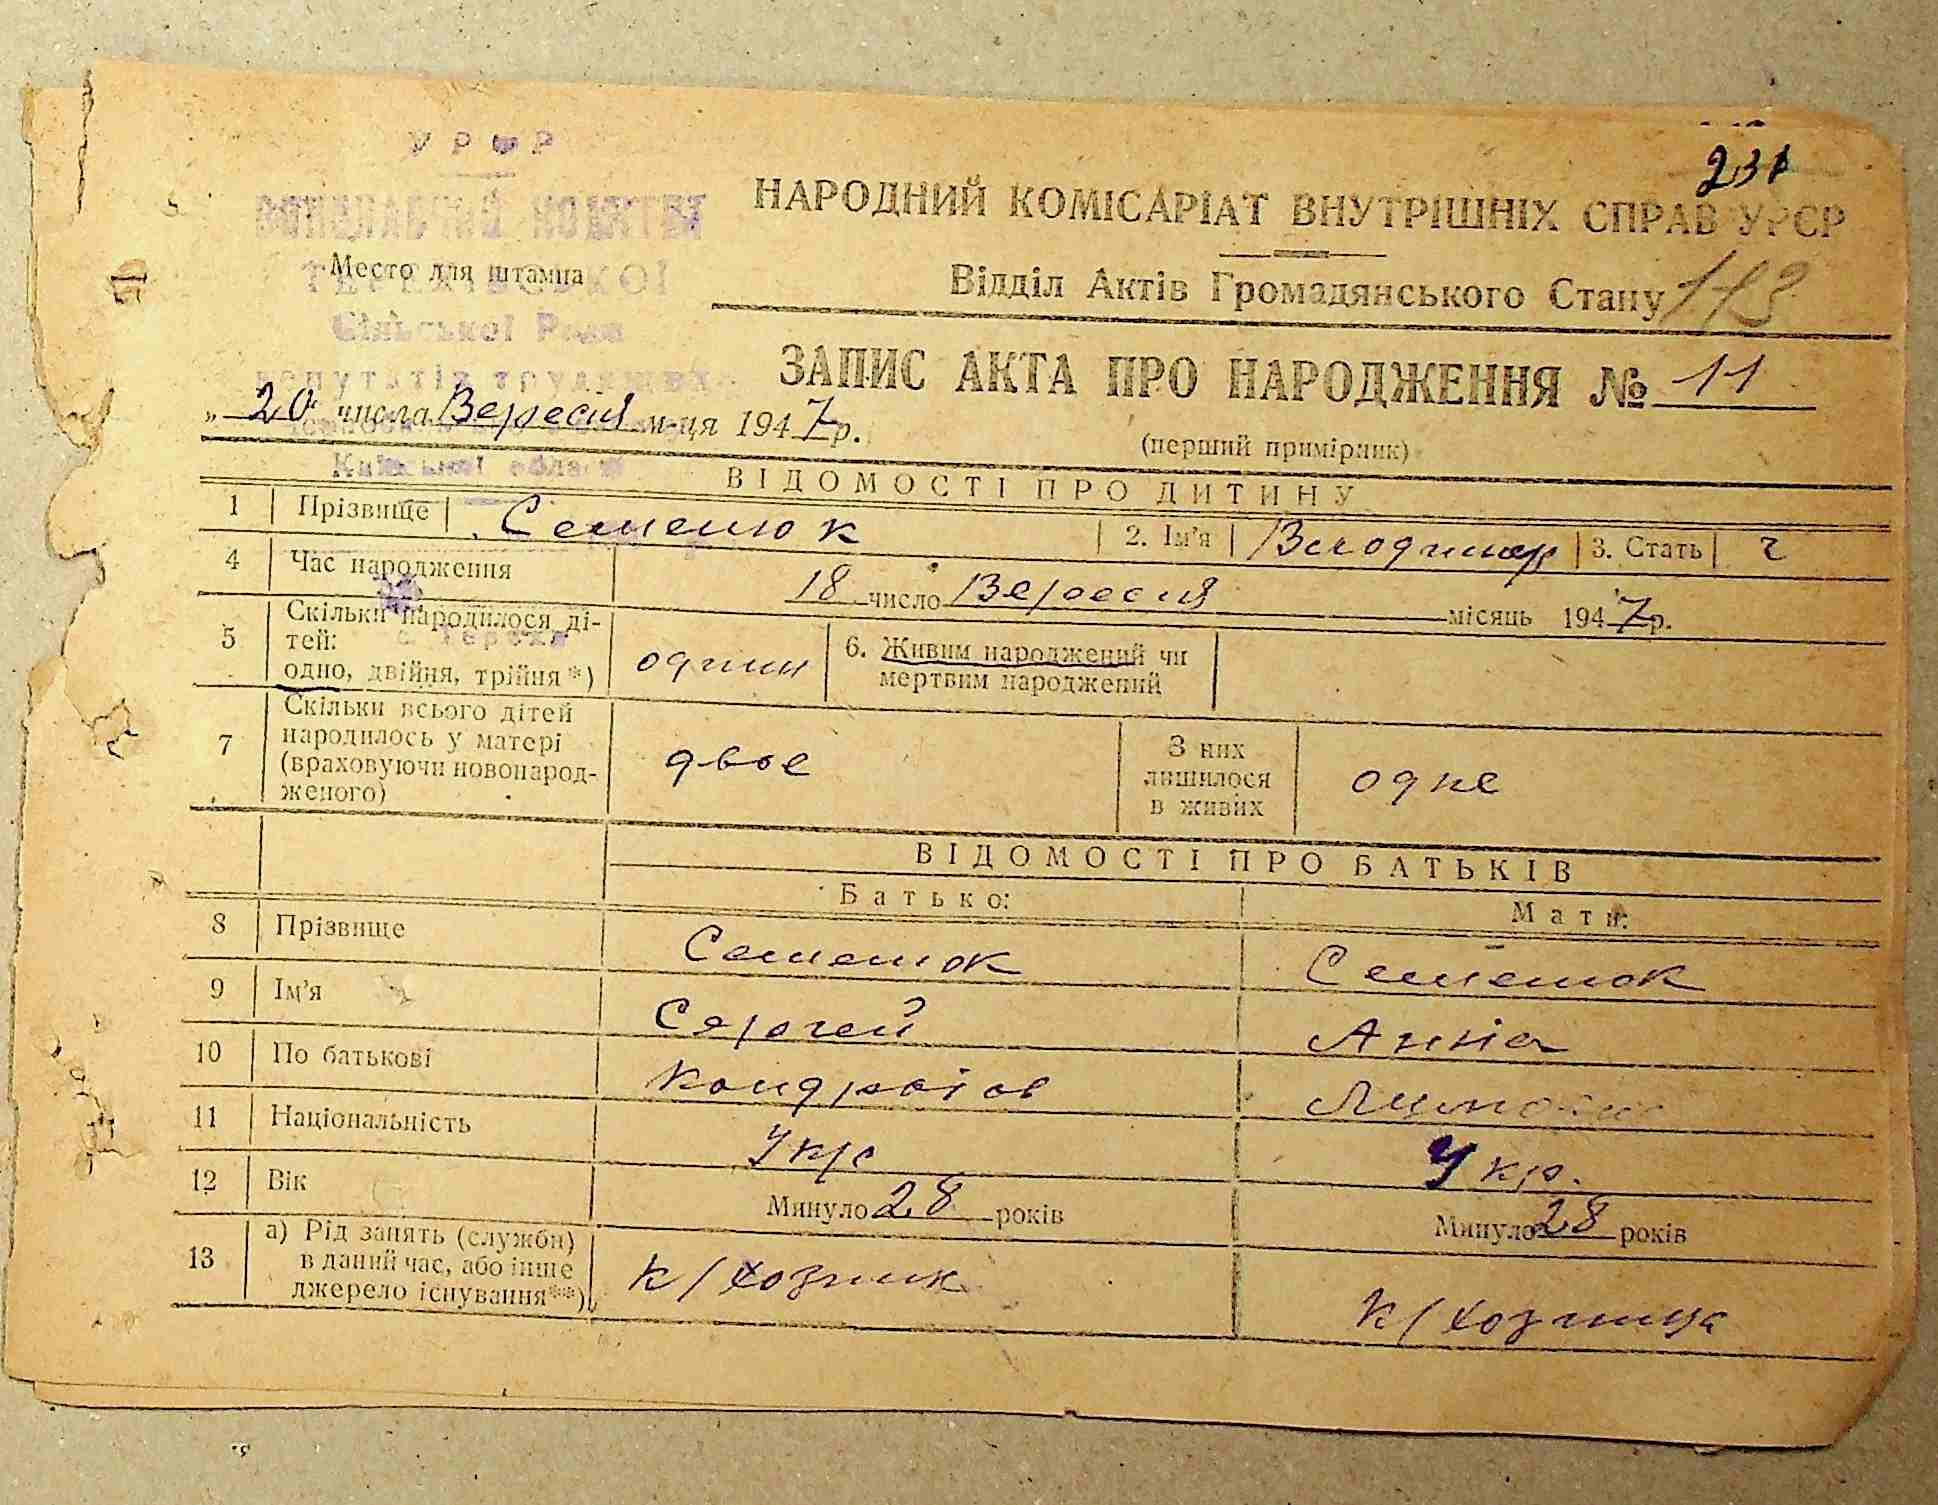 231
УРСР
ВИКОНАВЧИЙ КОМІТЕТ
Место для штампа
Сільської Ради
депутатів трудящих
Київської області
с. Тереха
НАРОДНИЙ КОМІСАРІАТ ВНУТРІШНІХ СПРАВ УРСР
Відділ Актів Громадянського Стану 113
ЗАПИС АКТА ПРО НАРОДЖЕННЯ № 11
„ 20 числа Вересня м-ця 1947 р.
(перший примірник)
ВІДОМОСТІ ПРО ДИТИНУ
1 Прізвище Семенюк 2. Ім'я Володимир 3. Стать ч
4 Час народження 18 число Вересня місяць 1947 р.
5 Скільки народилося ді-
тей:
одно, двійня, трійня*) один
6. Живим народжений чи
мертвим народжений
7 Скільки всього дітей
народилось у матері
(враховуючи новонарод-
женого) двое
З них
лишилося
в живих одне
ВІДОМОСТІ ПРО БАТЬКІВ
Батько: Мати:
8 Прізвище Семенюк Семенюк
9 Ім'я Сергей Анна
10 По батькові Кондратов
11 Національність Укр Укр.
12 Вік Минуло 28 років Минуло 28 років
13 а) Рід занять (служби)
в даний час, або інше
джерело існування**) к/хозник к/хозниця